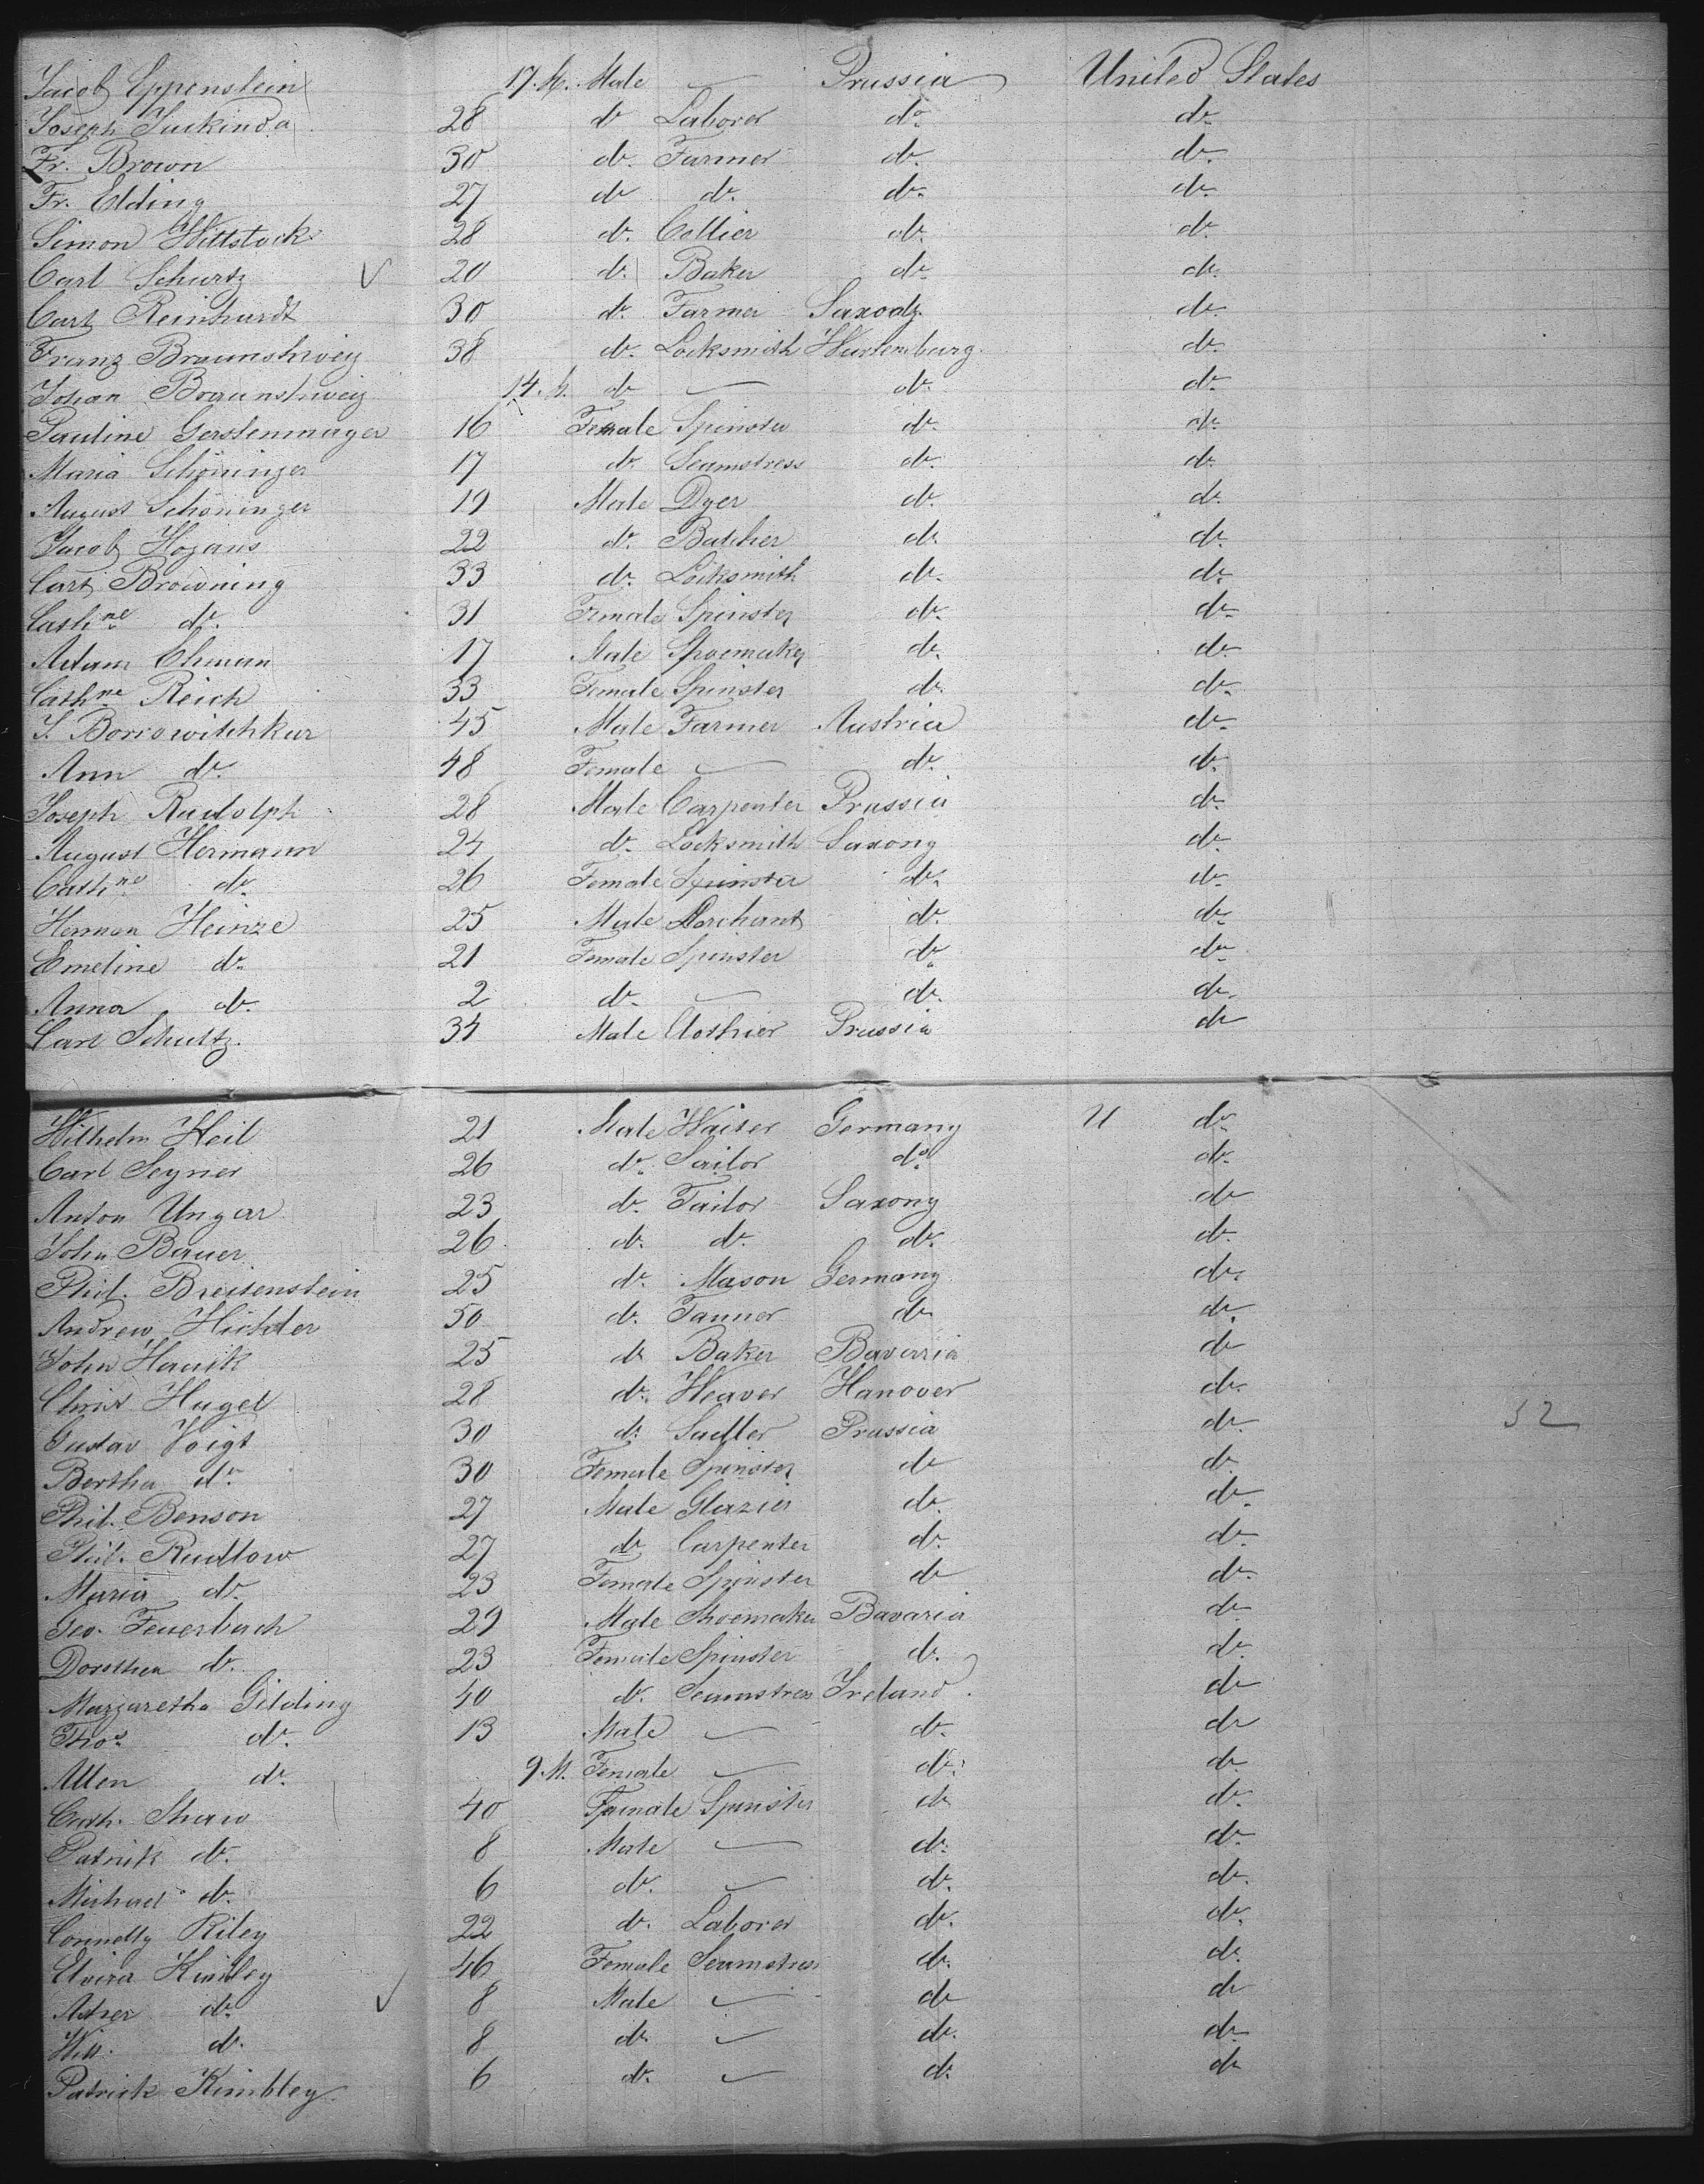 Jacob Eppenstein 17.M. Male — Prussia United States
Joseph Suckinda 28 do Laborer do do
Fr. Brown 30 do Farmer do do
Fr. Elding 27 do do do do
Simon Wittstock 28 do Collier do do
Carl Schurtz 20 do Baker do do
Carl Reinhardt 30 do Farmer Saxony do
Franz Braunshweig 38 do Locksmith Wurtemburg do
Johan Braunshweig 14.M. do — do do
Pauline Gerstenmayer 16 Female Spinster do do
Maria Schöninger 17 do Seamstress do do
August Schöninger 19 Male Dyer do do
Jacob Hogans 22 do Butcher do do
Carl Browning 33 do Locksmith do do
Cathne do 31 Female Spinster do do
Adam Ehman 17 Male Shoemaker do do
Cathne Reich 33 Female Spinster do do
J. Borrowitchkur 45 Male Farmer Austria do
Ann do 48 Female — do do
Joseph Rudolph 28 Male Carpenter Prussia do
August Hermann 24 do Locksmith Saxony do
Cathne do 26 Female Spinster do do
Herman Heinze 25 Male Merchant do do
Emeline do 21 Female Spinster do do
Anna do 2 do — do do
Carl Schultz 34 Male Clothier Prussia do
Wilhelm Heil 21 Male Waiter Germany U do
Carl Seyner 26 do Sailor do do
Anton Ungar 23 do Tailor Saxony do
John Bauer 26 do do do do
Phil. Breitenstein 25 do Mason Germany do
Andrew Hichler 50 do Tanner do do
John Hauik 25 do Baker Bavaria do
Christ Hugel 28 do Weaver Hanover do
Gustav Voigt 30 do Sadler Prussia do 52
Bertha do 30 Female Spinster do do
Phil. Benson 27 Male Glazier do do
Phil. Rudlow 27 do Carpenter do do
Maria do 23 Female Spinster do do
Geo. Feuerbach 29 Male Shoemaker Bavaria do
Dorothea do 23 Female Spinster do do
Margaretha Gilding 40 do Seamstress Ireland do
Thos do 13 Male — do do
Allen do 9.M. Female — do do
Cath. Shaw 40 Female Spinster do do
Patrick do 8 Male — do do
Michael do 6 do — do do
Connelly Riley 22 do Laborer do do
Elvira Kimbley 46 Female Seamstress do do
do 8 Male — do do
Will. do 8 do — do do
Patrick Kimbley 6 do — do do